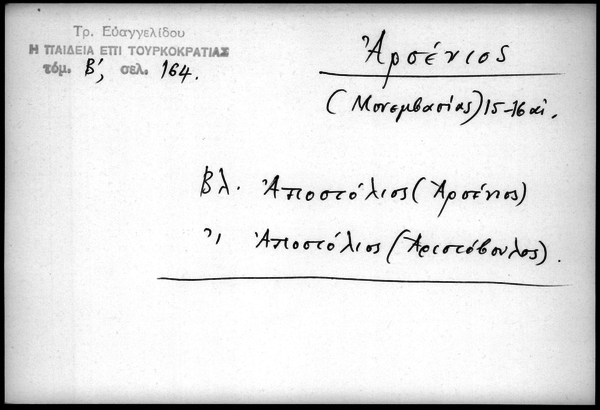 Τρ. Εὐαγγελίδου
Η ΠΑΙΔΕΙΑ ΕΠΙ ΤΟΥΡΚΟΚΡΑΤΙΑΣ
τόμ. Β', σελ. 164.
Ἀρσένιος
(Μονεμβασίας) 15-16 αἰ.
Βλ. Ἀποστόλιος (Ἀρσένιος)
" Ἀποστόλιος (Ἀριστόβουλος).